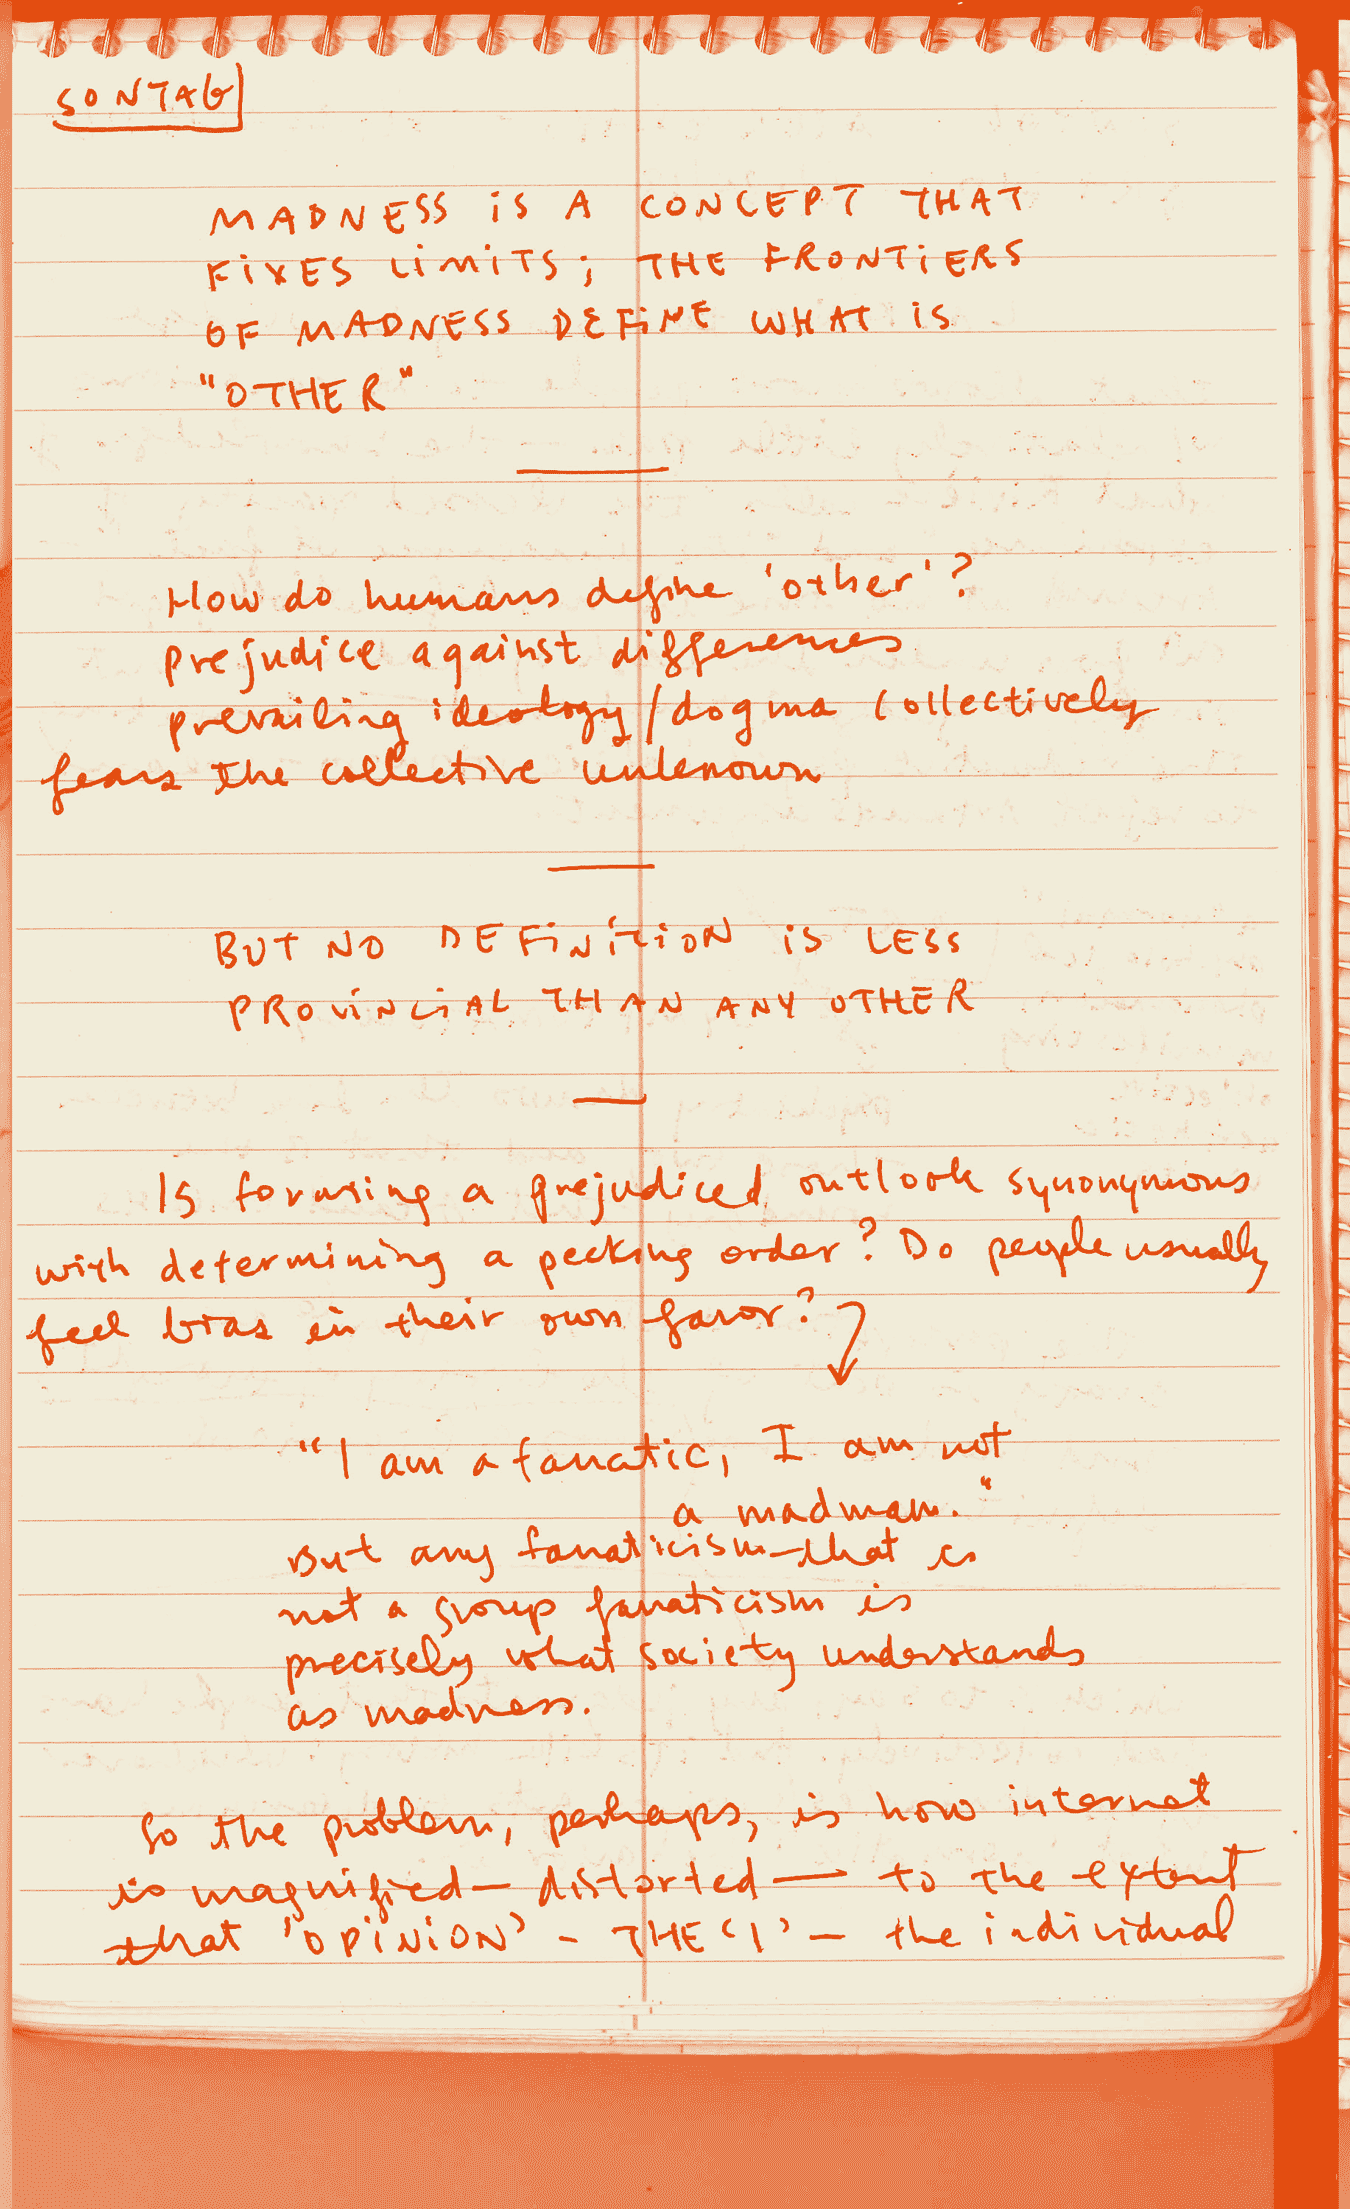 SONTAG
MADNESS IS A CONCEPT THAT
FIXES LIMITS; THE FRONTIERS
OF MADNESS DEFINE WHAT IS
"OTHER"
How do humans define 'other'?
prejudice against differences
prevailing ideology/dogma collectively
fears the collective unknown
BUT NO DEFINITION IS LESS
PROVINCIAL THAN ANY OTHER
Is forming a prejudiced outlook synonymous
with determining a pecking order? Do people usually
feel bias in their own favor?
"I am a fanatic, I am not
a madman."
But any fanaticism that is
not a group fanaticism is
precisely what society understands
as madness.
So the problem, perhaps, is how internet
is magnified – distorted — to the extent
that 'OPINION' - THE 'I' – the individual